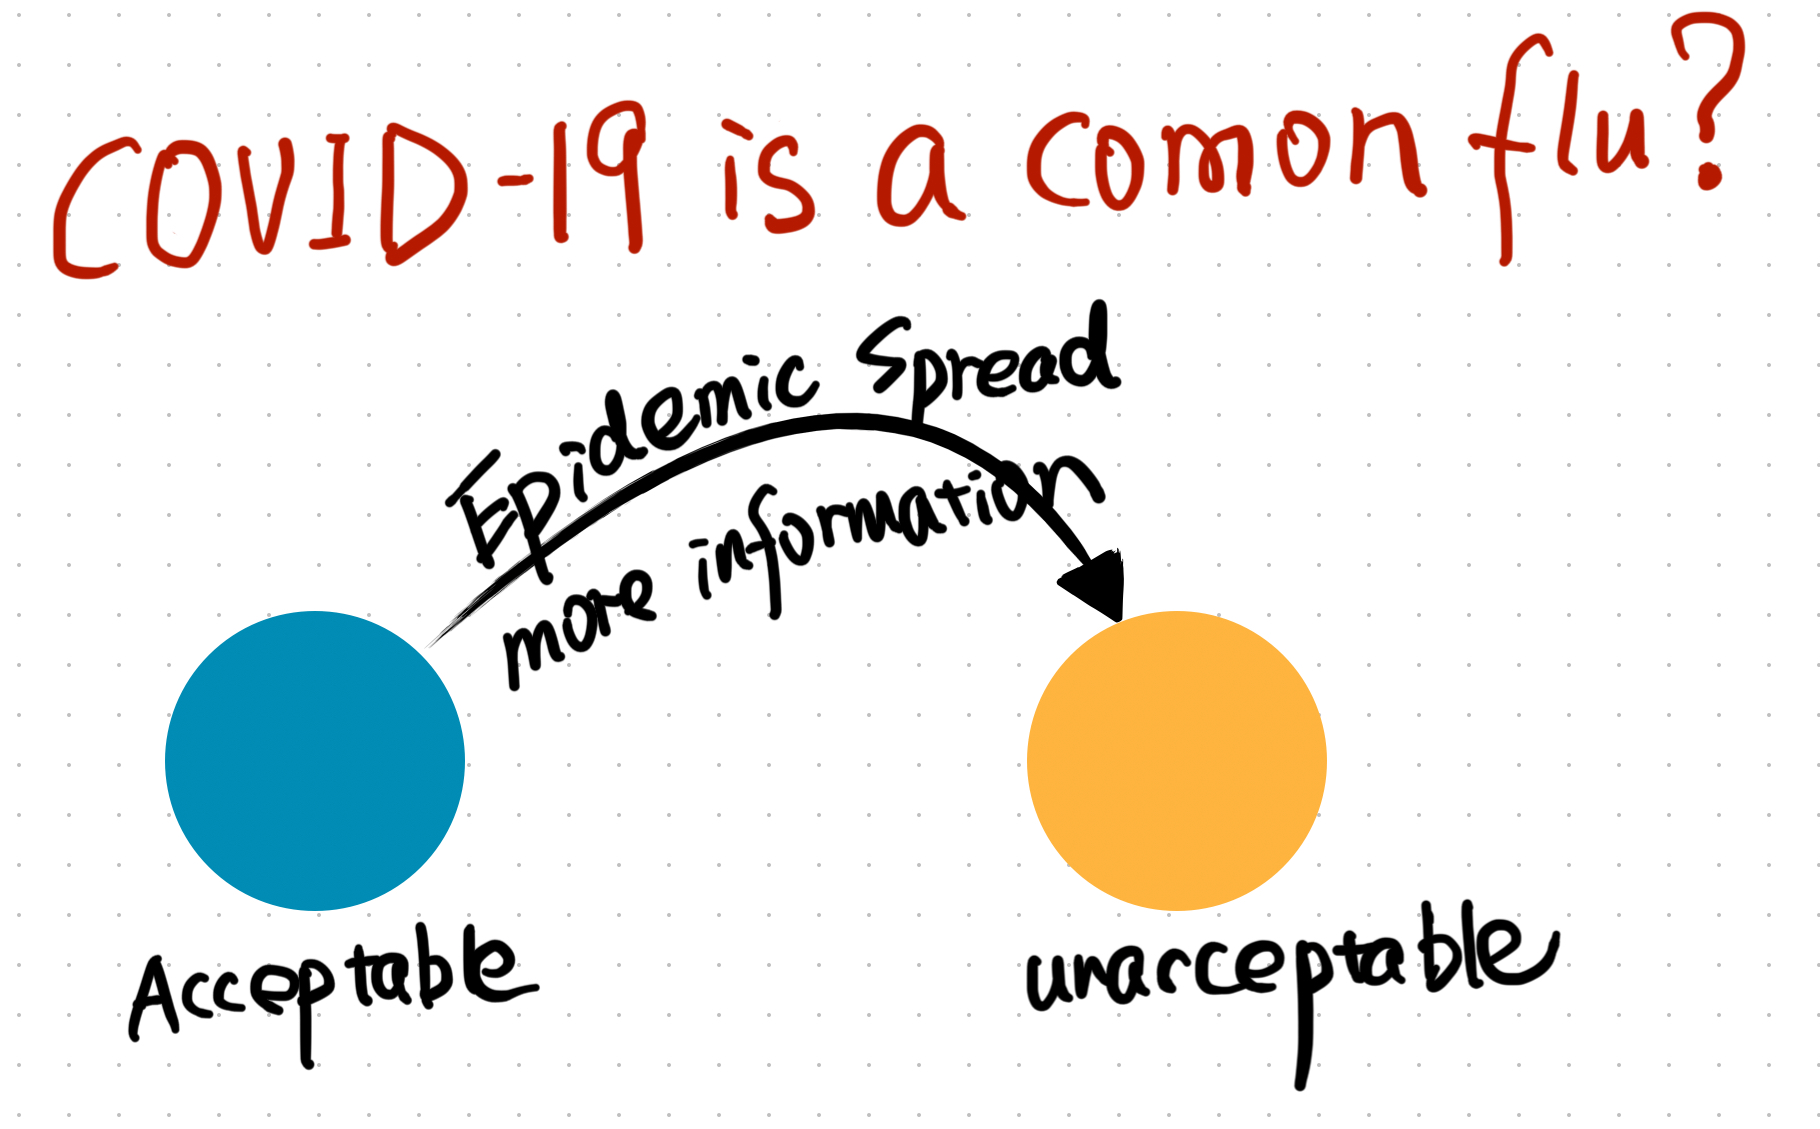 COVID-19 is a comon flu?
Epidemic Spread
more information
Acceptable
unacceptable